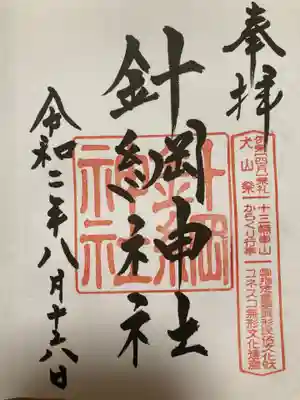 奉拝
犬山祭
十三輛車山
からくり行事
国指定重要無形民俗文化財
ユネスコ無形文化遺産
針綱神社
針綱
神社
令和二年八月十六日